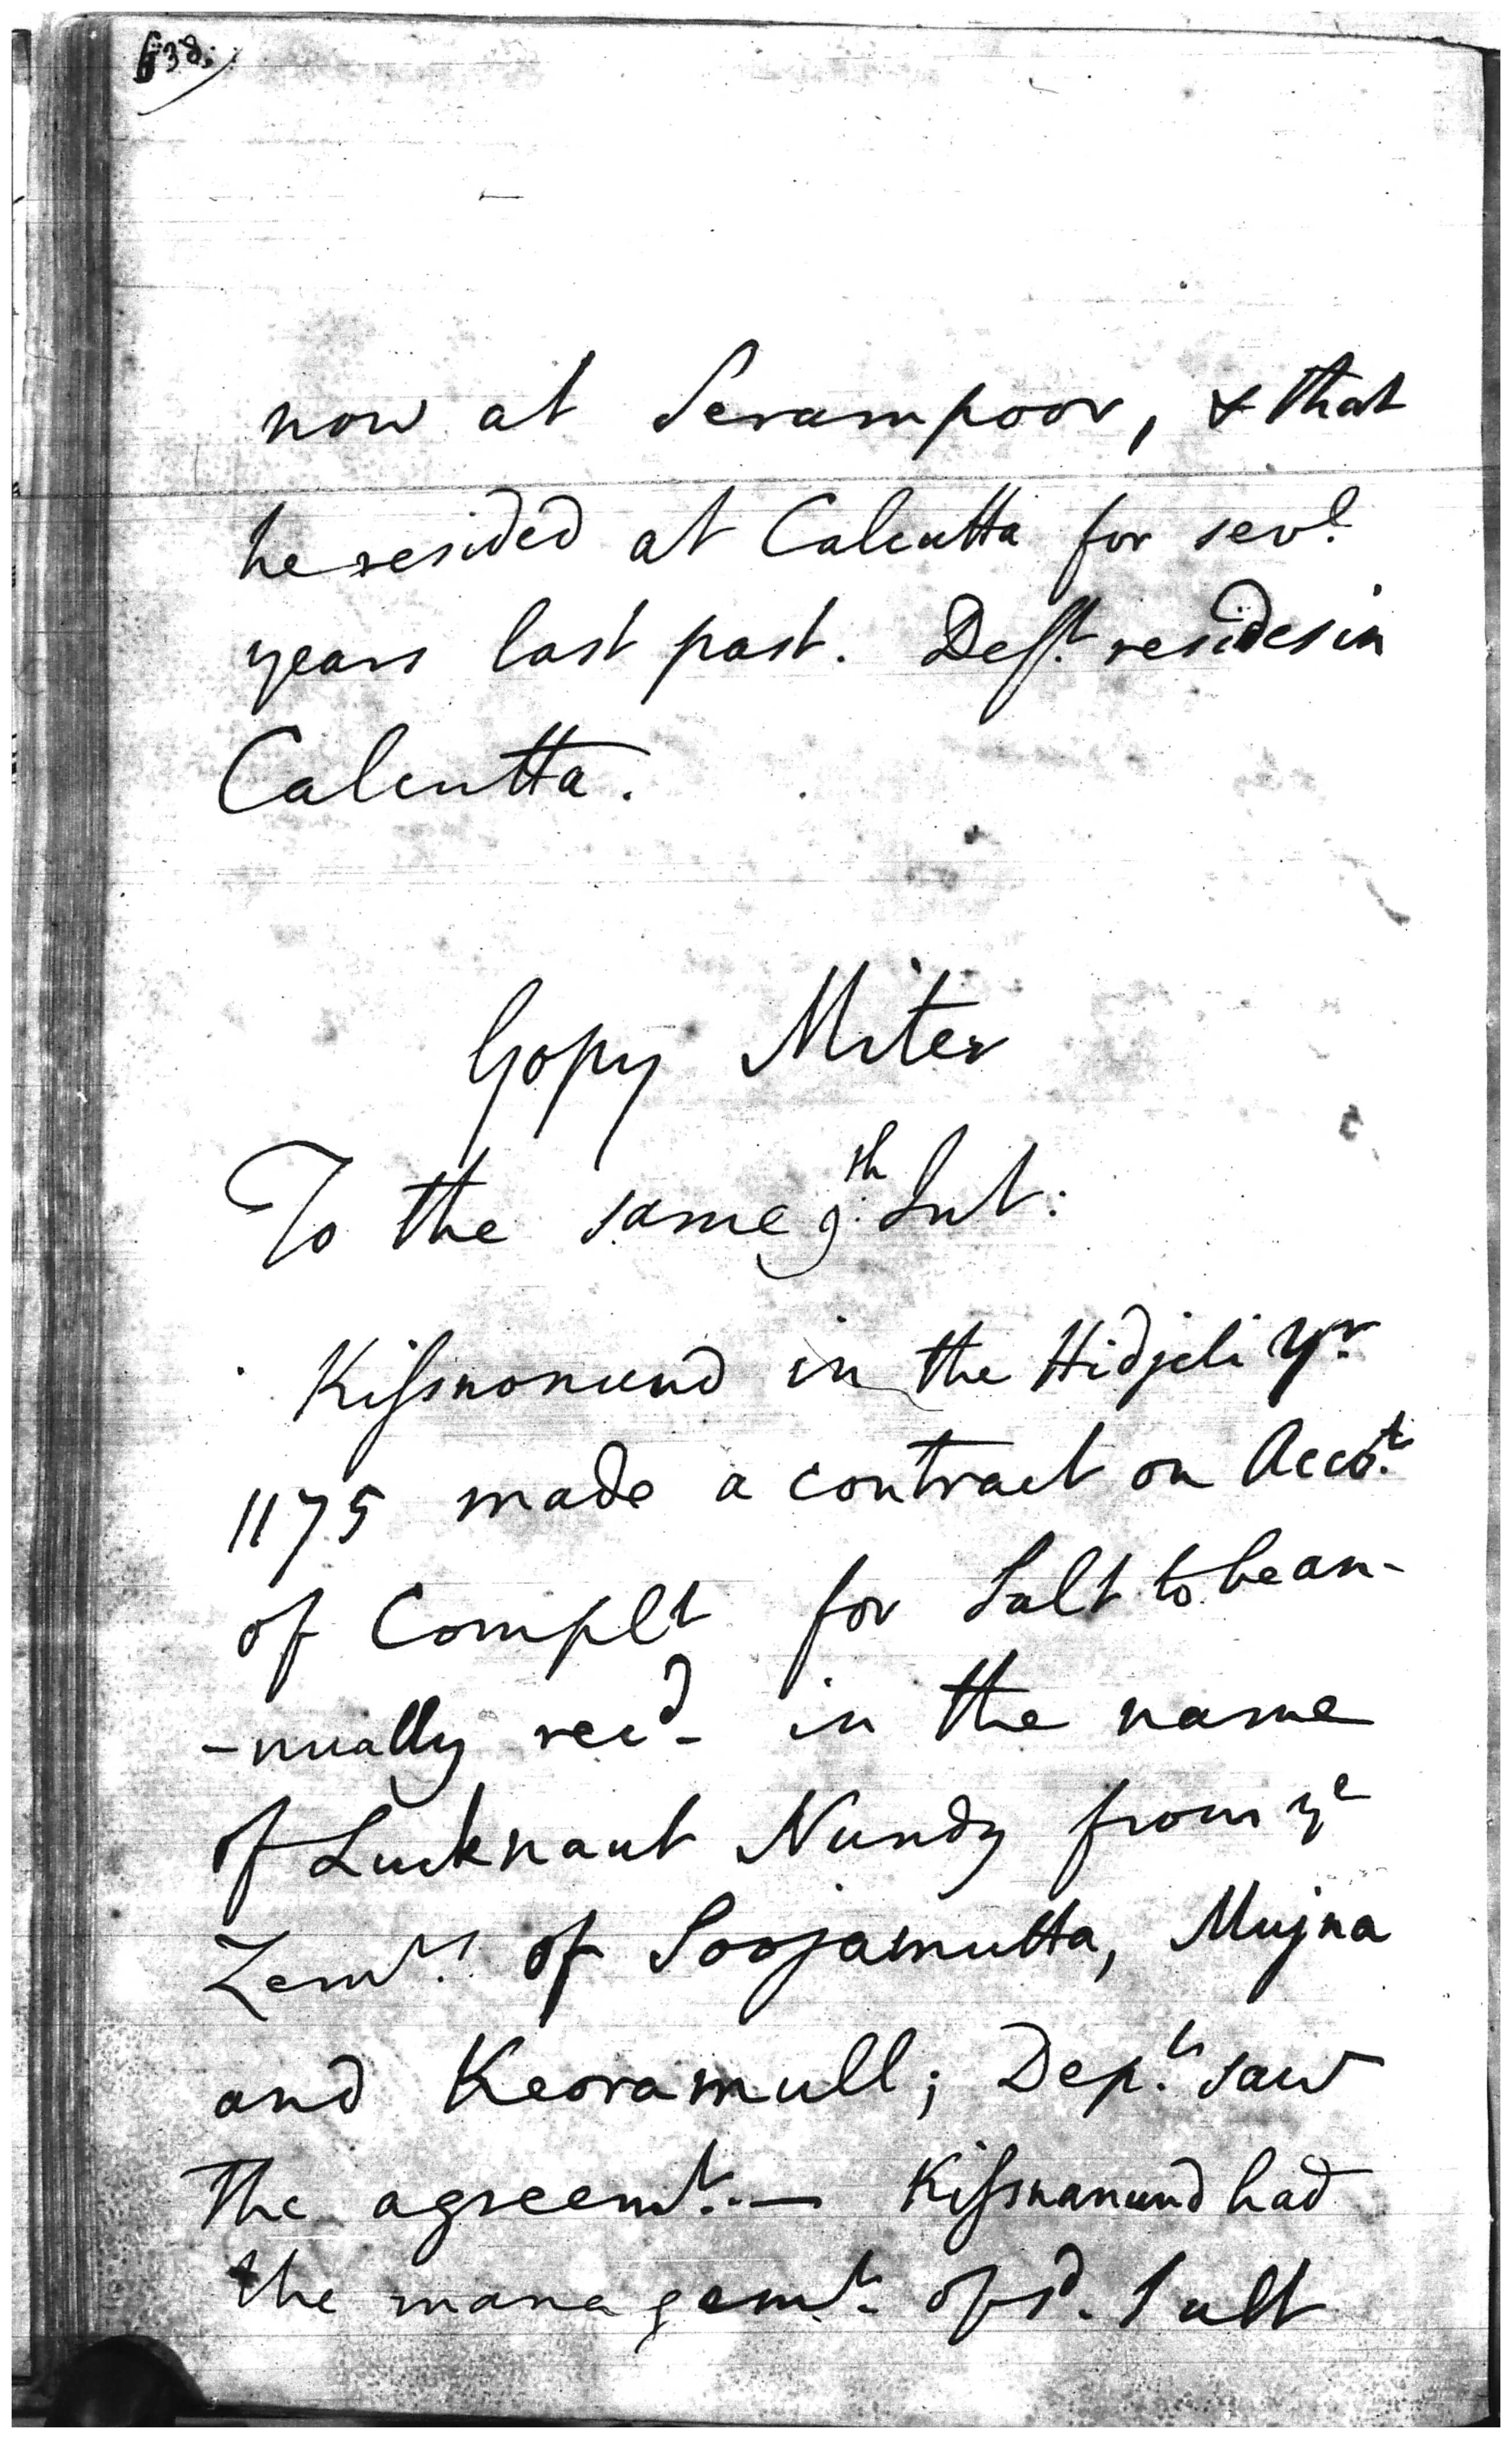 638.
now at Serampoor, & that
he resided at Calcutta for sevl.
years last past. Deft. resides in
Calcutta.
Gopy Miter
To the same 9th. Int:
Kissnonund in the Hidjeli Yr.
1175 made a contract on Accot.
of Complt for Salt to be an-
-nually recd- in the name
of Lucknaut Nundy from ye
Zemrs. of Soojamutta, Mujna
and Keoramull; Dept. saw
the agreemt. — Kissnanund had
the managemt. of sd. Salt